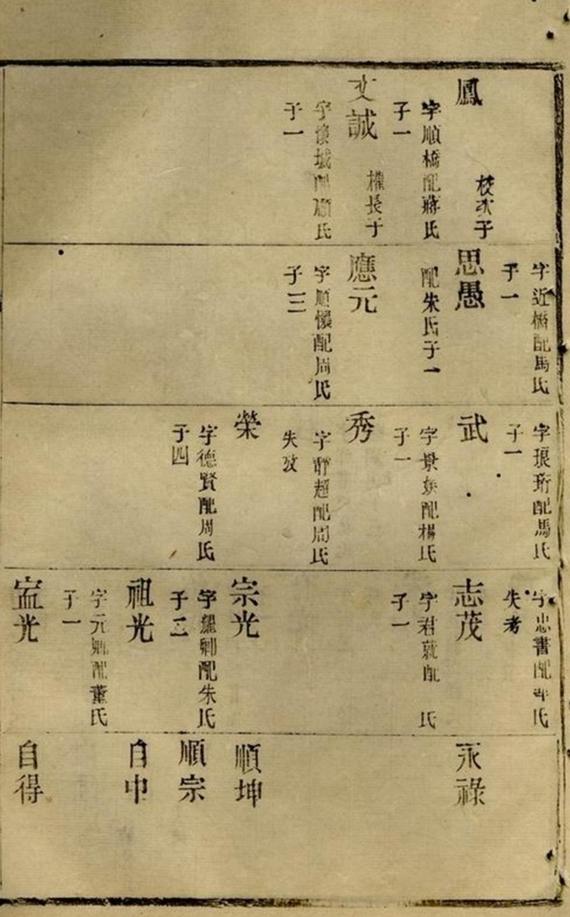 鳳
枝次子
字順橋配蔣氏
子一
文誠
權長子
字懷城配顧氏
子一
字近橋配馬氏
子一
思愚
配朱氏子一
應元
字順懷配周氏
子三
字琅珩配馬氏
子一
武
字景英配楊氏
子一
秀
字靜超配周氏
失攷
榮
字德賢配周氏
子四
字忠書配 氏
失考
志茂
字君 配 氏
子一
宗光
字 卿配朱氏
子二
祖光
字元 配董氏
子一
光
永祿
順坤
順宗
自中
自得